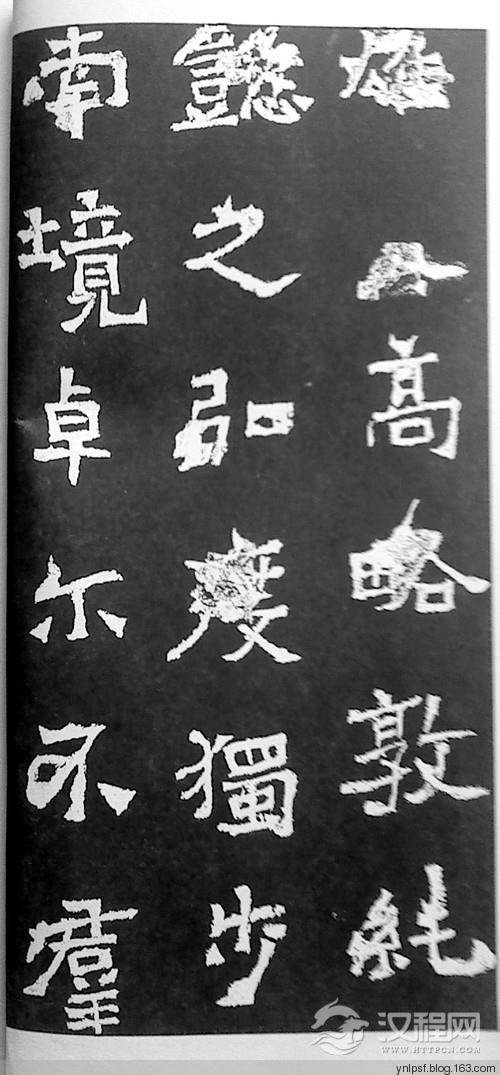 雄高略敦純
懿之弘度獨步
南境卓尔不羣
汉程网
WWW.HTTPCN.COM
ynlpsf.blog.163.com